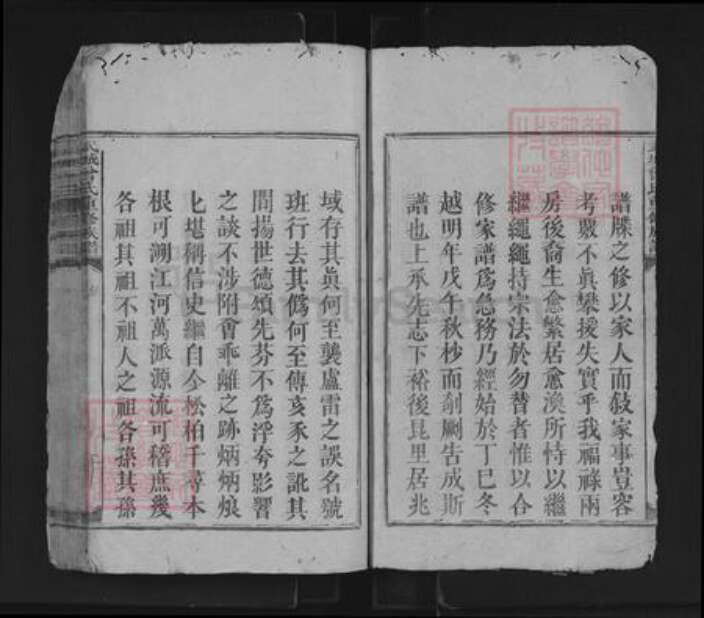 譜牒之修以家人而敍家事豈容
考覈不眞攀援失實乎我福祿兩
房後裔生愈繁居愈渙所恃以繼
繼繩繩持宗法於勿替者惟以合
修家譜爲急務乃經始於丁巳冬
越明年戊午秋杪而剞劂告成斯
譜也上承先志下裕後昆里居兆
域存其眞何至襲盧雷之誤名號
班行去其僞何至傳亥豕之訛其
間揚世德頌先芬不爲浮夸影響
之談不涉附會乖離之跡炳炳烺
烺堪稱信史繼自今松柏千尋本
根可溯江河萬派源流可稽庶幾
各祖其祖不祖人之祖各孫其孫
武城曾氏重修族譜
FamilySearch